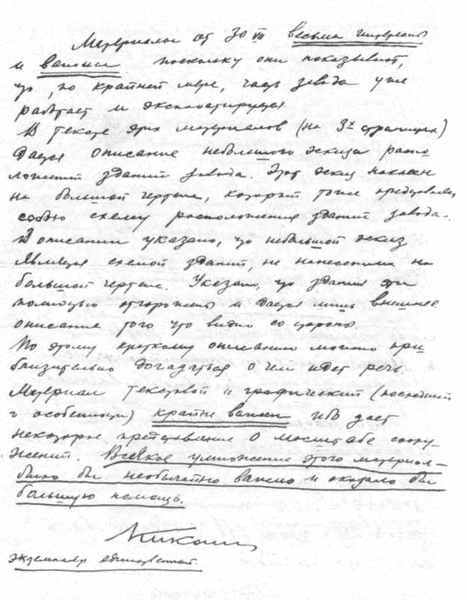 Материалы от 30 VII весьма интересны
и важны поскольку они показывают,
что, по крайней мере, часть завода уже
работает и эксплоатируется
В тексте этих материалов (на 3й странице)
дается описание небольшого эскиза распо-
ложения зданий завода. Этот эскиз
на большой чертеж, который тоже представляет
собою схему расположения зданий завода.
В описании указано, что небольшой эскиз
является схемой зданий, не нанесенных на
большой чертеж. Указано, что здания эти
полностью отгорожены и дается лишь внешнее
описание того что видно со стороны.
По этому краткому описанию можно при-
близительно догадаться о чем идет речь.
Материал текстовой и графический (последний
в особенности) крайне важен ибо дает
некоторое представление о масштабе соору-
жений. Всякое умножение этого материала
было бы необычайно важно и оказало бы
большую помощь.
экземпляр единственный.